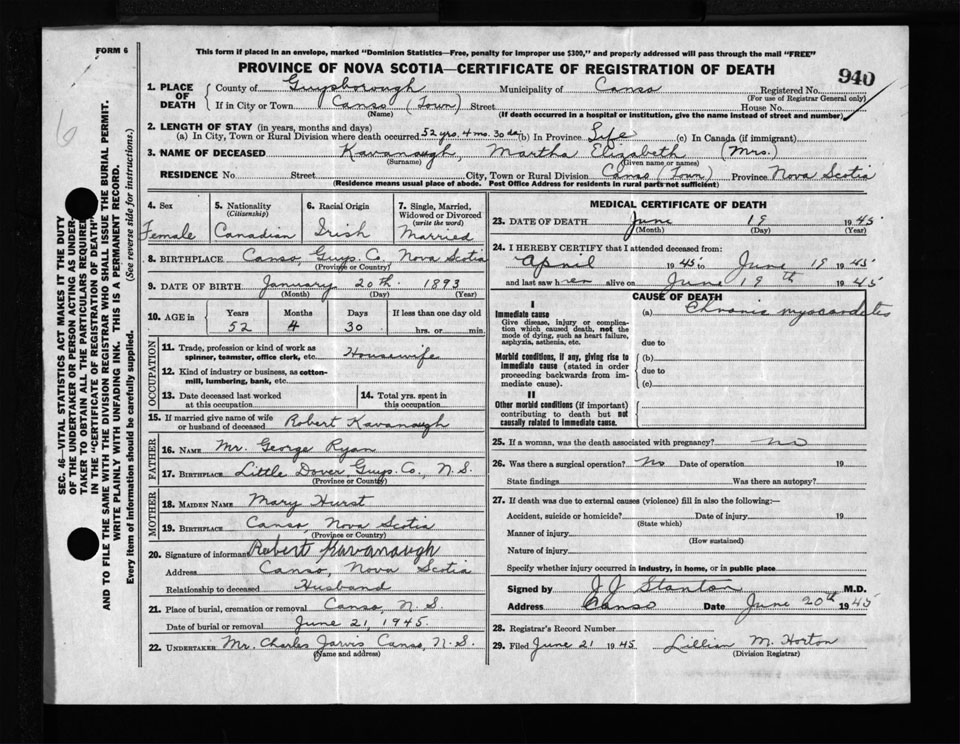 FORM 6
This form if placed in an envelope, marked "Dominion Statistics—Free, penalty for improper use $300," and properly addressed will pass through the mail "FREE"
PROVINCE OF NOVA SCOTIA—CERTIFICATE OF REGISTRATION OF DEATH
940
1. PLACE OF DEATH
County of Guysborough Municipality of Canso Registered No.
(For use of Registrar General only)
If in City or Town Canso (Town) Street House No.
(Name) (If death occurred in a hospital or institution, give the name instead of street and number)
2. LENGTH OF STAY (in years, months and days)
(a) In City, Town or Rural Division where death occurred 52 yrs. 4 mo. 30 da (b) In Province Life (c) In Canada (if immigrant)
3. NAME OF DECEASED Kavanaugh, Martha Elizabeth (Mrs.)
(Surname) (Given name or names)
RESIDENCE No. Street City, Town or Rural Division Canso (Town) Province Nova Scotia
(Residence means usual place of abode. Post Office Address for residents in rural parts not sufficient)
4. Sex
Female
5. Nationality
(Citizenship)
Canadian
6. Racial Origin
Irish
7. Single, Married, Widowed or Divorced
(write the word)
Married
8. BIRTHPLACE Canso, Guys. Co. Nova Scotia
(Province or Country)
9. DATE OF BIRTH January 20th 1893
(Month) (Day) (Year)
10. AGE in
Years Months Days If less than one day old
52 4 30 hrs. or min.
OCCUPATION
11. Trade, profession or kind of work as spinner, teamster, office clerk, etc. Housewife
12. Kind of industry or business, as cotton-mill, lumbering, bank, etc.
13. Date deceased last worked at this occupation
14. Total yrs. spent in this occupation
15. If married give name of wife or husband of deceased Robert Kavanaugh
FATHER
16. NAME Mr. George Ryan
17. BIRTHPLACE Little Dover Guys. Co. N.S.
(Province or Country)
MOTHER
18. MAIDEN NAME Mary Hurst
19. BIRTHPLACE Canso, Nova Scotia
(Province or Country)
20. Signature of informant Robert Kavanaugh
Address Canso, Nova Scotia
Relationship to deceased Husband
21. Place of burial, cremation or removal Canso, N.S.
Date of burial or removal June 21, 1945.
22. UNDERTAKER Mr. Charles Jarvis Canso, N.S.
(Name and address)
MEDICAL CERTIFICATE OF DEATH
23. DATE OF DEATH June 19 1945
(Month) (Day) (Year)
24. I HEREBY CERTIFY that I attended deceased from:
April 1945 to June 19 1945
and last saw her alive on June 19th 1945
CAUSE OF DEATH
I
Immediate cause
Give disease, injury or complication which caused death, not the mode of dying, such as heart failure, asphyxia, asthenia, etc.
(a) Chronic myocardites
due to
Morbid conditions, if any, giving rise to immediate cause (stated in order proceeding backwards from immediate cause).
(b)
due to
(c)
II
Other morbid conditions (if important) contributing to death but not causally related to immediate cause.
25. If a woman, was the death associated with pregnancy? no
26. Was there a surgical operation? no Date of operation 19
State findings Was there an autopsy?
27. If death was due to external causes (violence) fill in also the following:—
Accident, suicide or homicide? Date of injury 19
(State which)
Manner of injury
(How sustained)
Nature of injury
Specify whether injury occurred in industry, in home, or in public place
Signed by J J Stanton M.D.
Address Canso Date June 20th 1945
28. Registrar's Record Number
29. Filed June 21 1945 Lillian M. Horton
(Division Registrar)
SEC. 46—VITAL STATISTICS ACT MAKES IT THE DUTY
OF THE UNDERTAKER OR PERSON ACTING AS UNDER-
TAKER TO OBTAIN ALL THE PARTICULARS REQUIRED
IN THE "CERTIFICATE OF REGISTRATION OF DEATH"
AND TO FILE THE SAME WITH THE DIVISION REGISTRAR WHO SHALL ISSUE THE BURIAL PERMIT.
WRITE PLAINLY WITH UNFADING INK. THIS IS A PERMANENT RECORD.
Every item of information should be carefully supplied. (See reverse side for instructions.)